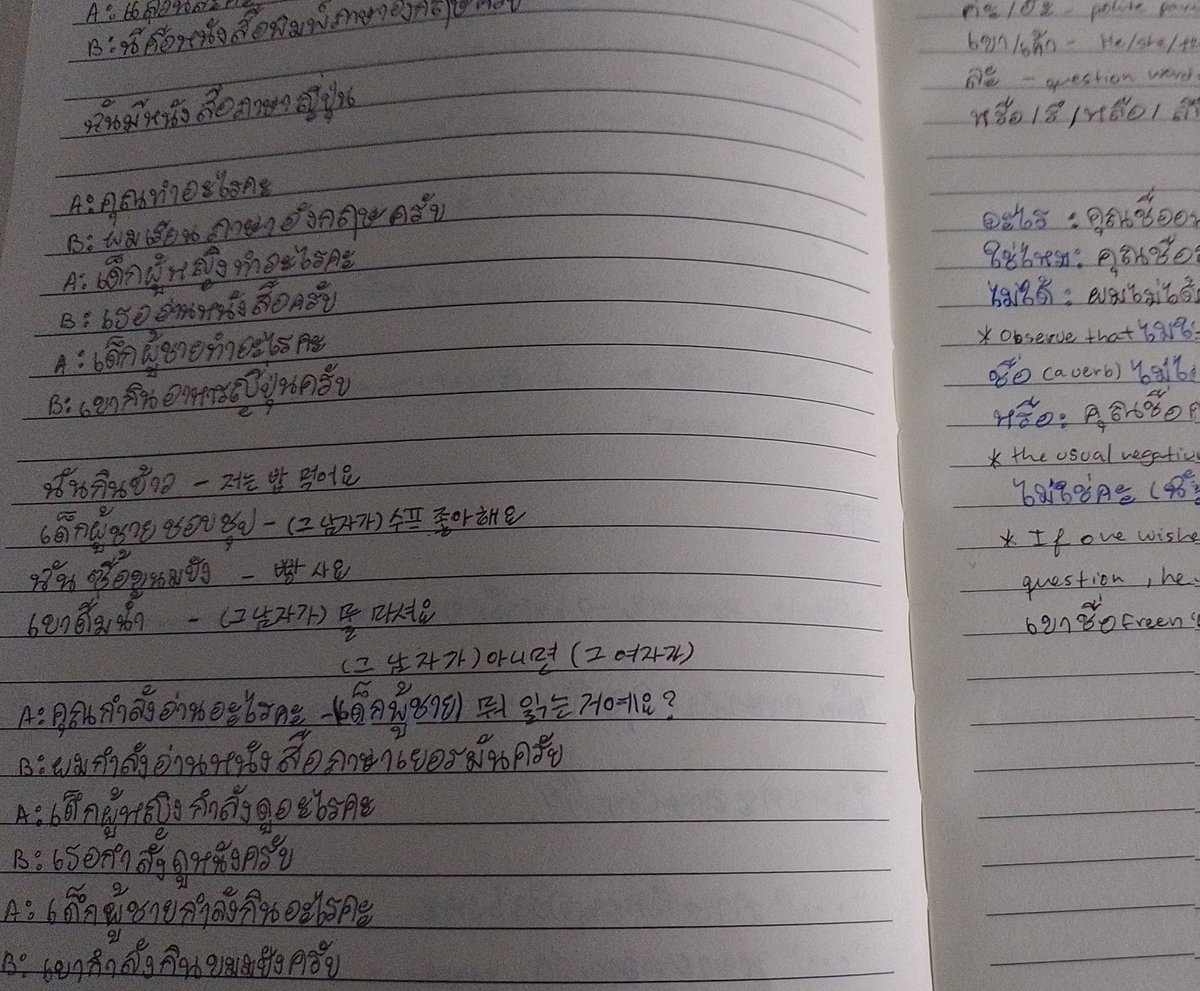 B: นี่คือหนังสือพิมพ์ภาษาอังกฤษครับ
ฉันมีหนังสือภาษาญี่ปุ่น
A: คุณทำอะไรคะ
B: ผมเรียนภาษาอังกฤษครับ
A: เด็กผู้หญิงทำอะไรคะ
B: เธออ่านหนังสือครับ
A: เด็กผู้ชายทำอะไรคะ
B: เขากินอาหารญี่ปุ่นครับ
ฉันกินข้าว - 저는 밥 먹어요
เด็กผู้ชายชอบซุป - (그 남자가) 수프 좋아해요
ฉันซื้อขนมปัง - 빵 사요
เขาดื่มน้ำ - (그 남자가) 물 마셔요
(그 남자가) 아니면 (그 여자가)
A: คุณกำลังอ่านอะไรคะ - (เด็กผู้ชาย) 뭐 읽는 거예요?
B: ผมกำลังอ่านหนังสือภาษาเยอรมันครับ
A: เด็กผู้หญิงกำลังดูอะไรคะ
B: เธอกำลังดูหนังครับ
A: เด็กผู้ชายกำลังกินอะไรคะ
B: เขากำลังกินขมมปังครับ
คะ/ค่ะ - polite
เขา/เค้า - He/she/
ละ - question word
หรือ/รึ/หลือ/
อะไร : คุณชื่อ
ใช่ไหม: คุณชื่อ
ไม่ได้ : ผมไม่ได้
* Observe that
ชื่อ (a verb)
หรือ: คุณชื่อ
* the usual negative
ไม่ใช่คะ
* If one wishe
question, he
เขาชื่อ Freen